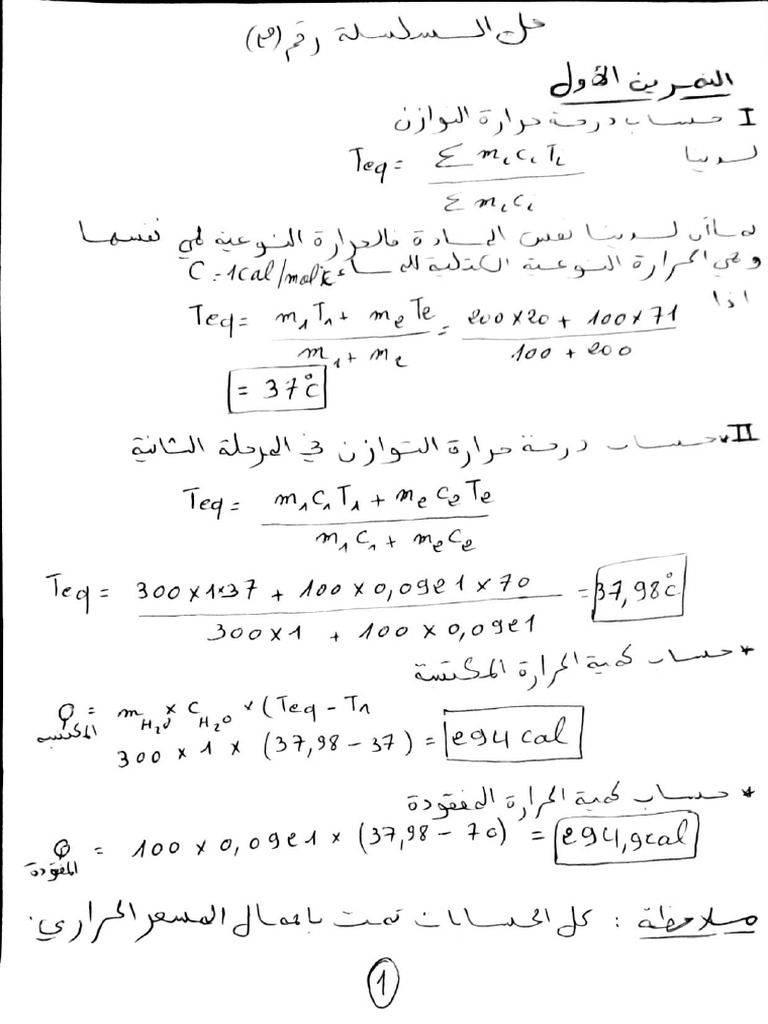 حل السلسلة رقم (3)
التمرين الأول
I حساب درجة حرارة التوازن
لدينا Teq = Σ mᵢcᵢTᵢ / Σ mᵢcᵢ
بما أن لدينا نفس المادة فالحرارة النوعية هي نفسها
وهي الحرارة النوعية الكتلية للماء C = 1cal/mol°k
اذا
Teq = m₁T₁ + m₂T₂ / m₁ + m₂ = 200×20 + 100×71 / 100 + 200
= 37°C
II * حساب درجة حرارة التوازن في المرحلة الثانية
Teq = m₁C₁T₁ + m₂C₂T₂ / m₁C₁ + m₂C₂
Teq = 300×1×37 + 100×0,0921×70 / 300×1 + 100×0,0921 = 37,98°C
* حساب كمية الحرارة المكتسبة
Q المكتسبة = m H₂O × C H₂O × (Teq - T₁
300 × 1 × (37,98 - 37) = 294 cal
* حساب كمية الحرارة المفقودة
Q المفقودة = 100 × 0,0921 × (37,98 - 70) = 294,9cal
ملاحظة : كل الحسابات تمت باهمال المسعر الحراري.
1